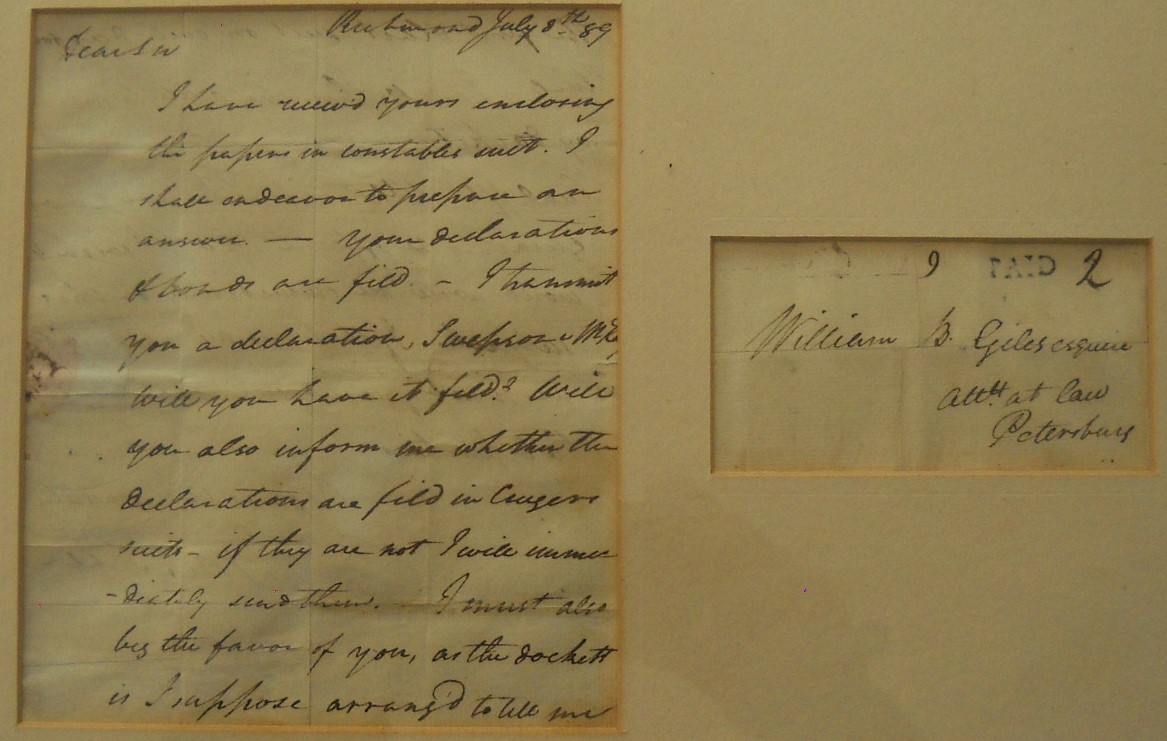 Richmond July 8th 89
Dear Sir
I have receiv'd yours enclosing
the papers in constables suit. I
shall endeavor to prepare an
answer. — Your declarations
& bonds are fild. - I transmit
you a declaration, Swepson
Will you have it fild? Will
you also inform me whether the
declarations are fild in Crugers
suits - if they are not I will imme
-diately send them. I must also
beg the favor of you, as the dockett
is I suppose arrang'd to tell me
9 PAID 2
William B. Giles esquire
at law
Petersburg